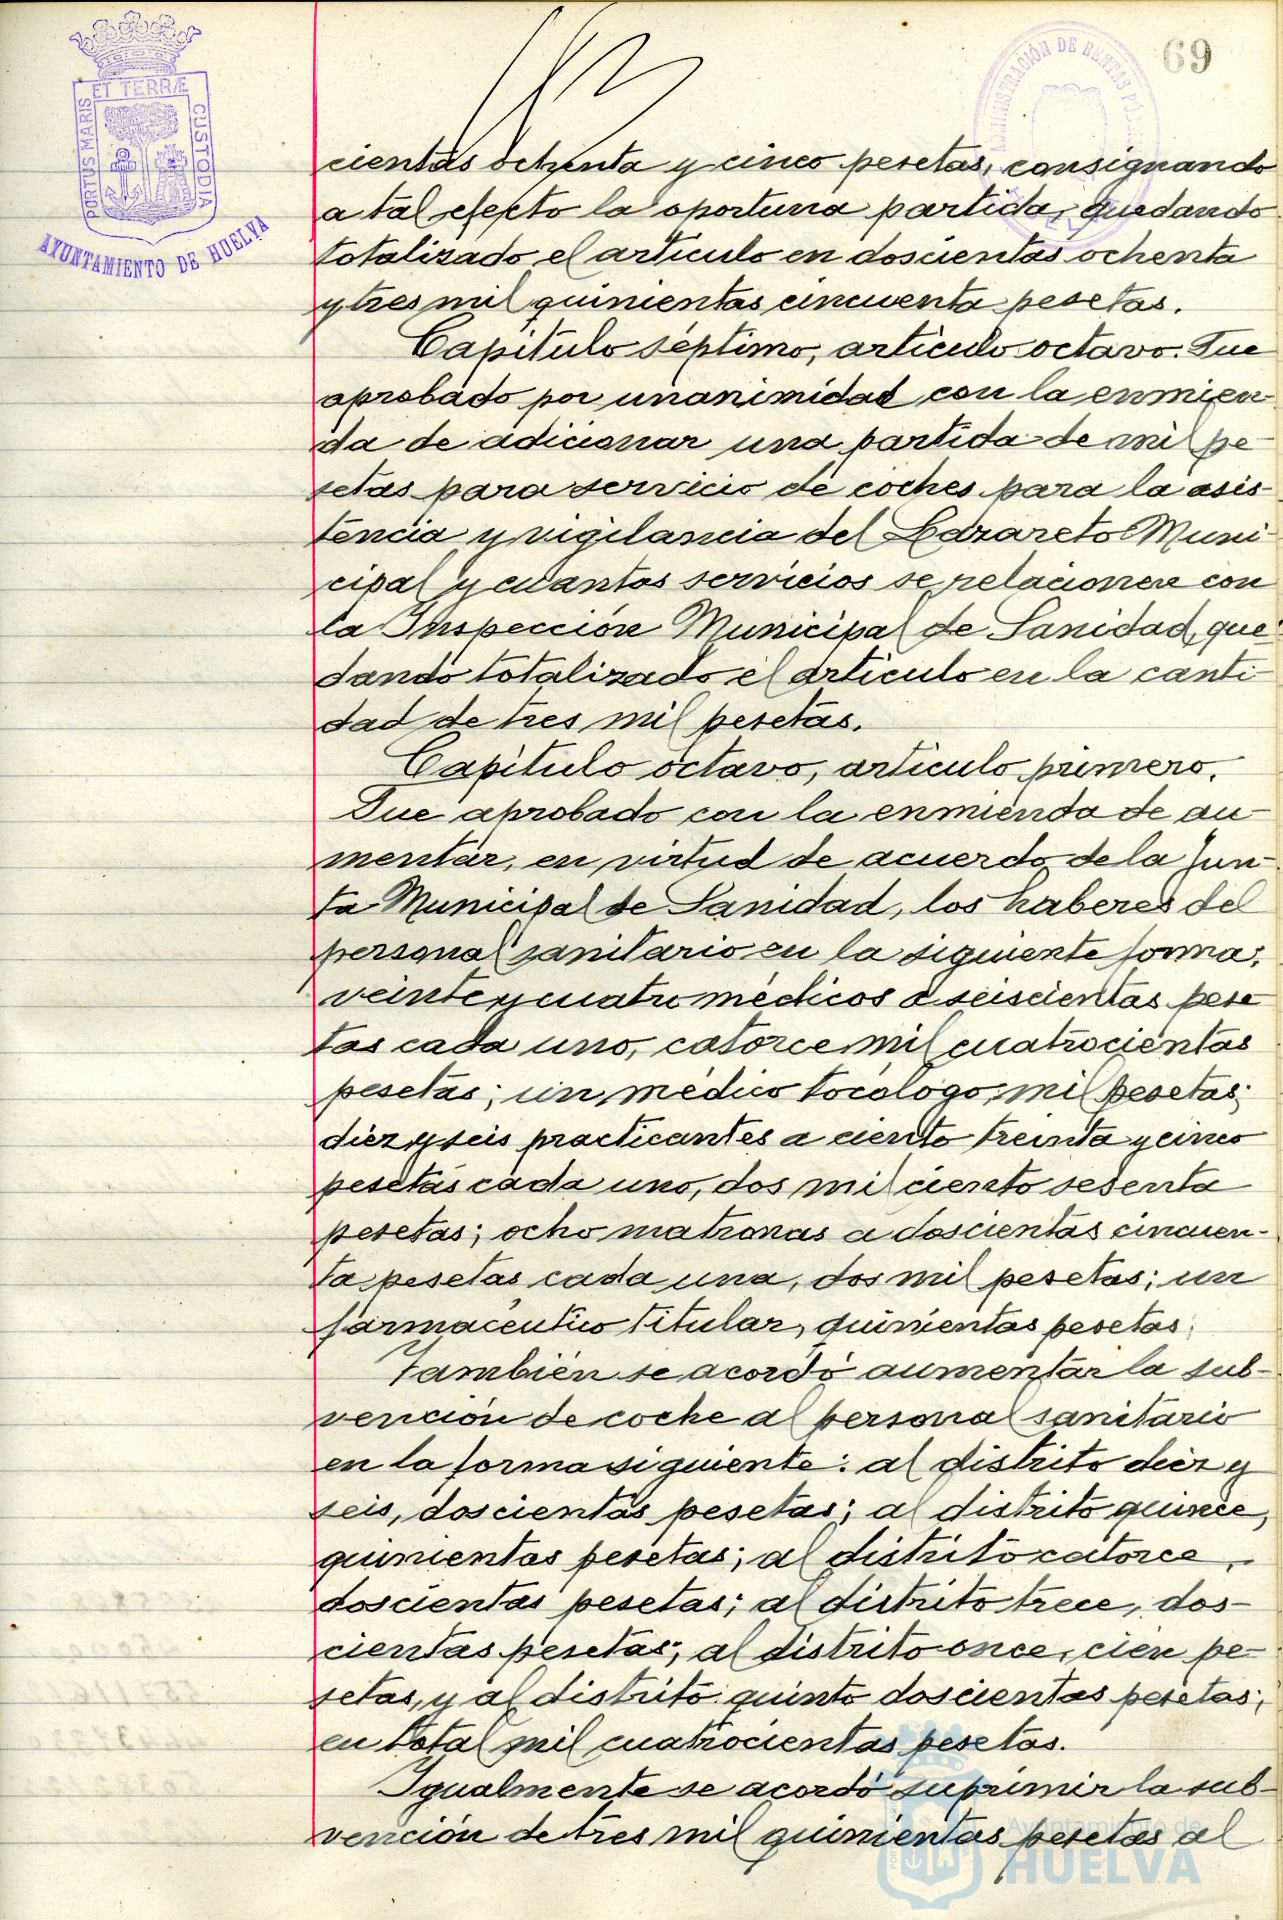 69
ET TERRÆ
PORTUS MARIS
CUSTODIA
AYUNTAMIENTO DE HUELVA
ADMINISTRACIÓN DE RENTAS
cientas ochenta y cinco pesetas, consignando
a tal efecto la oportuna partida, quedando
totalizado el artículo en doscientas ochenta
y tres mil quinientas cincuenta pesetas.
Capítulo séptimo, artículo octavo. Fue
aprobado por unanimidad con la enmien-
da de adicionar una partida de mil pe-
setas para servicio de coches para la asis-
tencia y vigilancia del Lazareto Muni-
cipal y cuantos servicios se relacionen con
la Inspección Municipal de Sanidad, que-
dando totalizado el artículo en la canti-
dad de tres mil pesetas.
Capítulo octavo, artículo primero.
Fue aprobado con la enmienda de au-
mentar, en virtud de acuerdo de la Jun-
ta Municipal de Sanidad, los haberes del
personal sanitario en la siguiente forma:
veinte y cuatro médicos a seiscientas pese-
tas cada uno, catorce mil cuatrocientas
pesetas; un médico tocólogo, mil pesetas;
diez y seis practicantes a ciento treinta y cinco
pesetas cada uno, dos mil ciento sesenta
pesetas; ocho matronas a doscientas cincuen-
ta pesetas cada una, dos mil pesetas; un
farmacéutico titular, quinientas pesetas.
También se acordó aumentar la sub-
vención de coche al personal sanitario
en la forma siguiente: al distrito diez y
seis, doscientas pesetas; al distrito quince,
quinientas pesetas; al distrito catorce,
doscientas pesetas; al distrito trece, dos-
cientas pesetas; al distrito once, cien pe-
setas, y al distrito quinto doscientas pesetas;
en total mil cuatrocientas pesetas.
Igualmente se acordó suprimir la sub-
vención de tres mil quinientas pesetas al
Ayuntamiento de
HUELVA